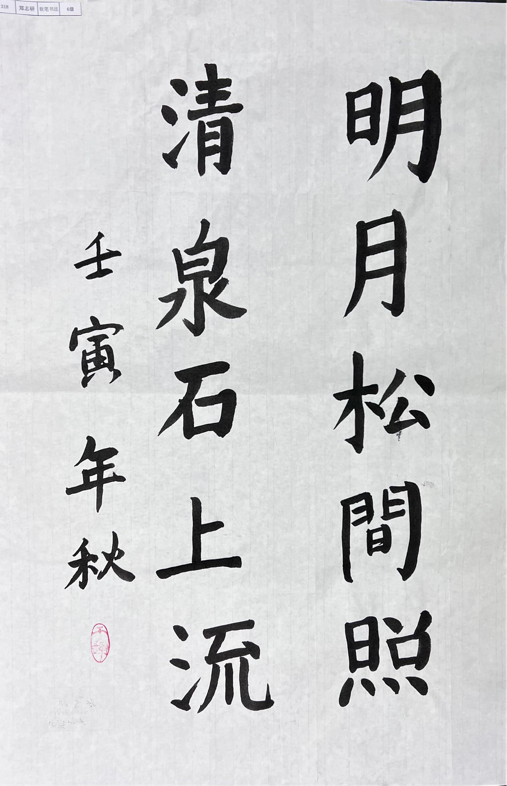 明月松間照
清泉石上流
壬寅年秋